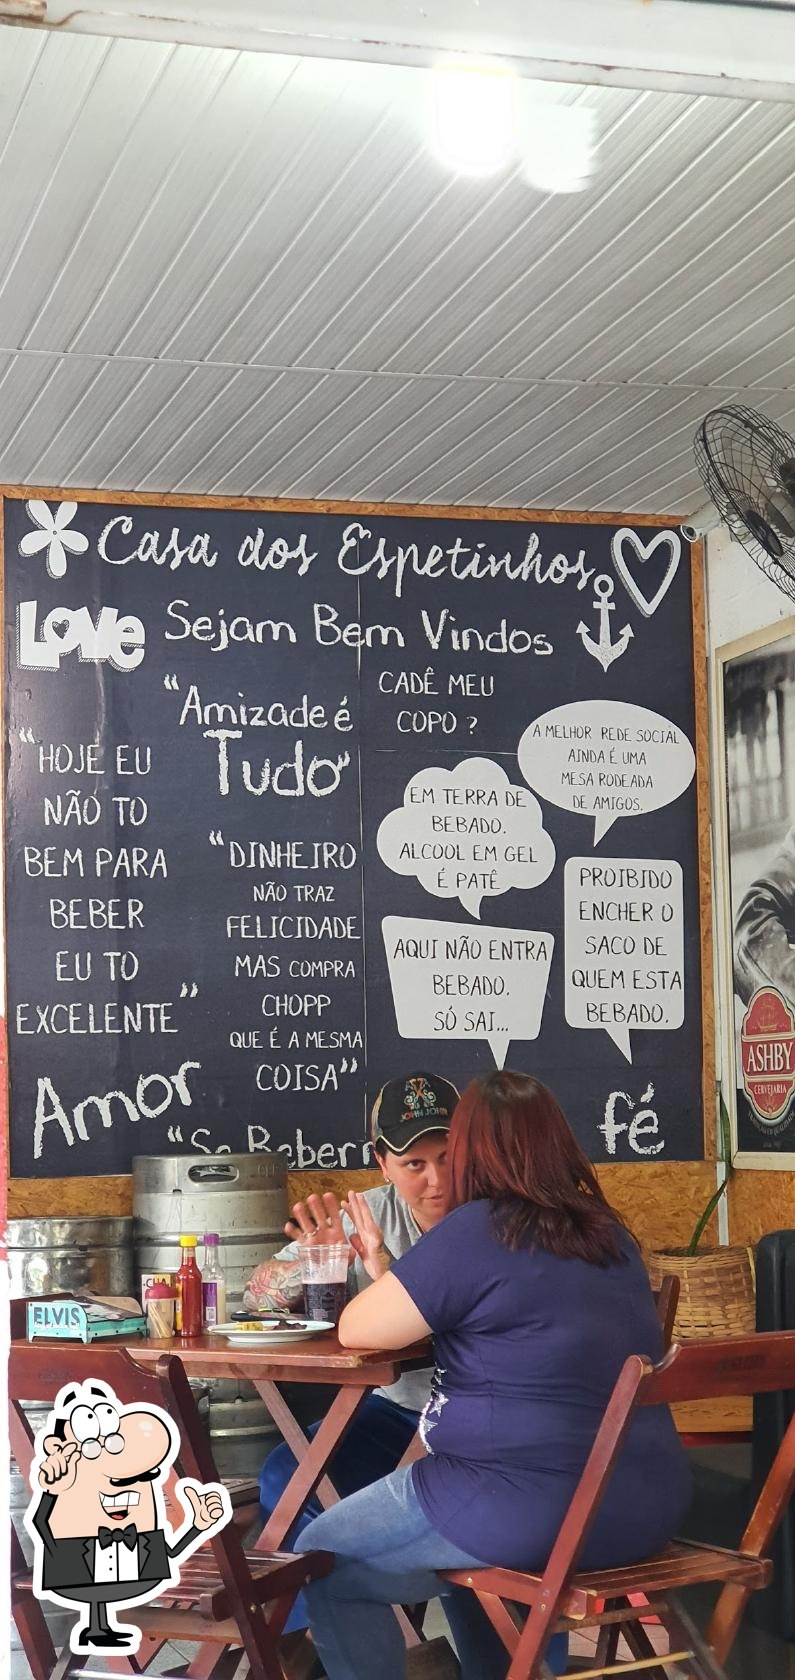 Casa dos Espetinhos
Love
Sejam Bem Vindos
"Amizade é
Tudo"
CADÊ MEU
COPO ?
"HOJE EU
NÃO TO
BEM PARA
BEBER
EU TO
EXCELENTE"
"DINHEIRO
NÃO TRAZ
FELICIDADE
MAS COMPRA
CHOPP
QUE É A MESMA
COISA"
A MELHOR REDE SOCIAL
AINDA É UMA
MESA RODEADA
DE AMIGOS.
EM TERRA DE
BEBADO.
ALCOOL EM GEL
É PATÊ
PROIBIDO
ENCHER O
SACO DE
QUEM ESTA
BEBADO.
AQUI NÃO ENTRA
BEBADO.
SÓ SAI...
Amor
fé
"Se Beber
ASHBY
CERVEJARIA
JOHN JOHN
ELVIS